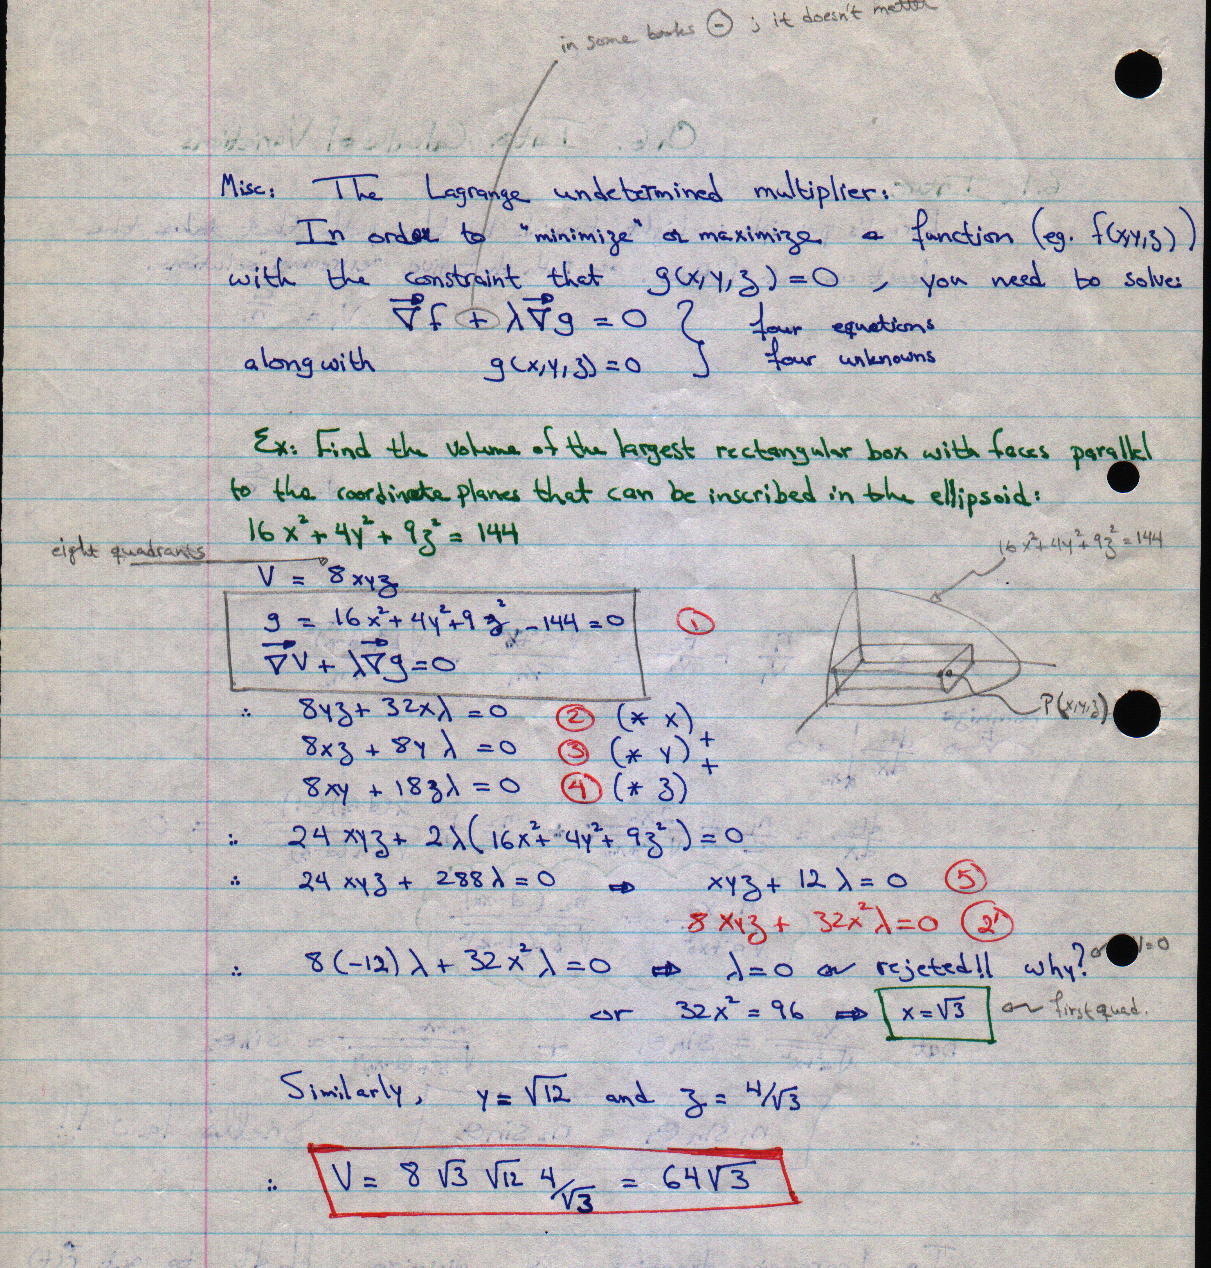 in some books ⊖ ; it doesn't matter
Misc: The Lagrange undetermined multiplier:
In order to "minimize" or maximize a function (eg. f(x,y,z))
with the constraint that g(x,y,z)=0 , you need to solve:
∇f + λ∇g = 0 } four equations
along with g(x,y,z)=0 } four unknowns
Ex: Find the volume of the largest rectangular box with faces parallel
to the coordinate planes that can be inscribed in the ellipsoid:
16x²+4y²+9z²=144
eight quadrants
16x²+4y²+9z²=144
V = 8xyz
g = 16x²+4y²+9z²-144=0 ①
∇V+λ∇g=0
P(x,y,z)
∴ 8yz+32xλ=0 ② (* x) +
8xz+8yλ=0 ③ (* y) +
8xy+18zλ=0 ④ (* z)
∴ 24xyz+2λ(16x²+4y²+9z²)=0
∴ 24xyz+288λ=0 ⇒ xyz+12λ=0 ⑤
8xyz+32x²λ=0 ②'
∴ 8(-12)λ+32x²λ=0 ⇒ λ=0 rejeted!! why? =0
or 32x²=96 ⇒ x=√3 first quad.
Similarly, y=√12 and z=4/√3
∴ V = 8 √3 √12 4/√3 = 64√3